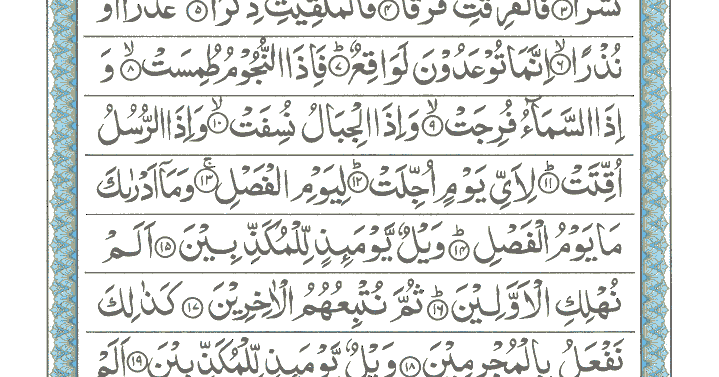 نَشۡرًا ۙ﴿۳﴾ فَالۡفٰرِقٰتِ فَرۡقًا ۙ﴿۴﴾ فَالۡمُلۡقِيٰتِ ذِكۡرًا ۙ﴿۵﴾ عُذۡرًا اَوۡ
نُذۡرًا ۙ﴿۶﴾ اِنَّمَا تُوۡعَدُوۡنَ لَوَاقِعٌ ؕ﴿۷﴾ فَاِذَا النُّجُوۡمُ طُمِسَتۡ ۙ﴿۸﴾ وَ
اِذَا السَّمَآءُ فُرِجَتۡ ۙ﴿۹﴾ وَ اِذَا الۡجِبَالُ نُسِفَتۡ ۙ﴿۱۰﴾ وَ اِذَا الرُّسُلُ
اُقِّتَتۡ ؕ﴿۱۱﴾ لِاَيِّ يَوۡمٍ اُجِّلَتۡ ؕ﴿۱۲﴾ لِيَوۡمِ الۡفَصۡلِ ۚ﴿۱۳﴾ وَ مَاۤ اَدۡرٰىكَ
مَا يَوۡمُ الۡفَصۡلِ ؕ﴿۱۴﴾ وَيۡلٌ يَّوۡمَئِذٍ لِّلۡمُكَذِّبِيۡنَ ﴿۱۵﴾ اَلَمۡ
نُهۡلِكِ الۡاَوَّلِيۡنَ ؕ﴿۱۶﴾ ثُمَّ نُتۡبِعُهُمُ الۡاٰخِرِيۡنَ ﴿۱۷﴾ كَذٰلِكَ
نَفۡعَلُ بِالۡمُجۡرِمِيۡنَ ﴿۱۸﴾ وَيۡلٌ يَّوۡمَئِذٍ لِّلۡمُكَذِّبِيۡنَ ﴿۱۹﴾ اَلَمۡ